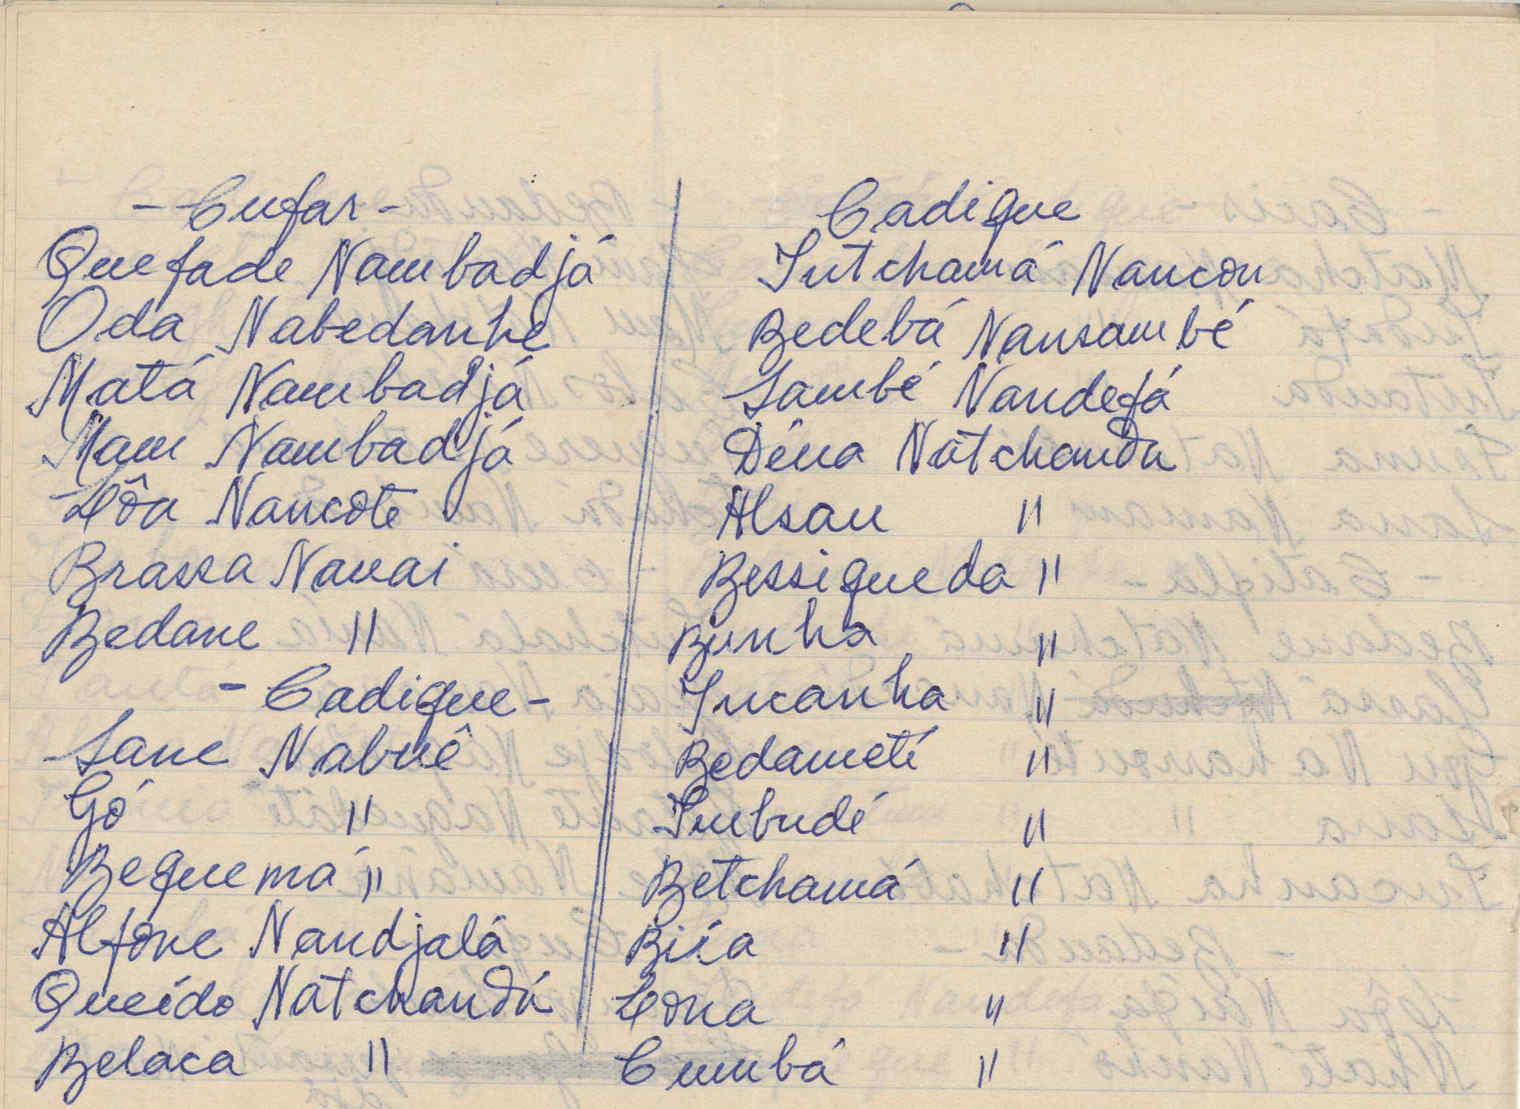 - Cufar -
Quefade Nambadjá
Oda Nabedanhe
Matá Nambadjá
Mam Nambadjá
Lôa Nancote
Brassa Nanai
Bedane "
- Cadique -
Sane Nabuê
Gó "
Bequemá "
Alfone Nandjalá
Queído Natchandá
Belaca "
Cadique
Intchamá Nancon
Bedebá Nansambé
Sambé Nandefá
Dêna Natchanda
Alsau "
Bessiqueda "
Bunha "
Incanha "
Bedametí "
Imbudé "
Betchamá "
Bisa "
Lona "
Cumbá "